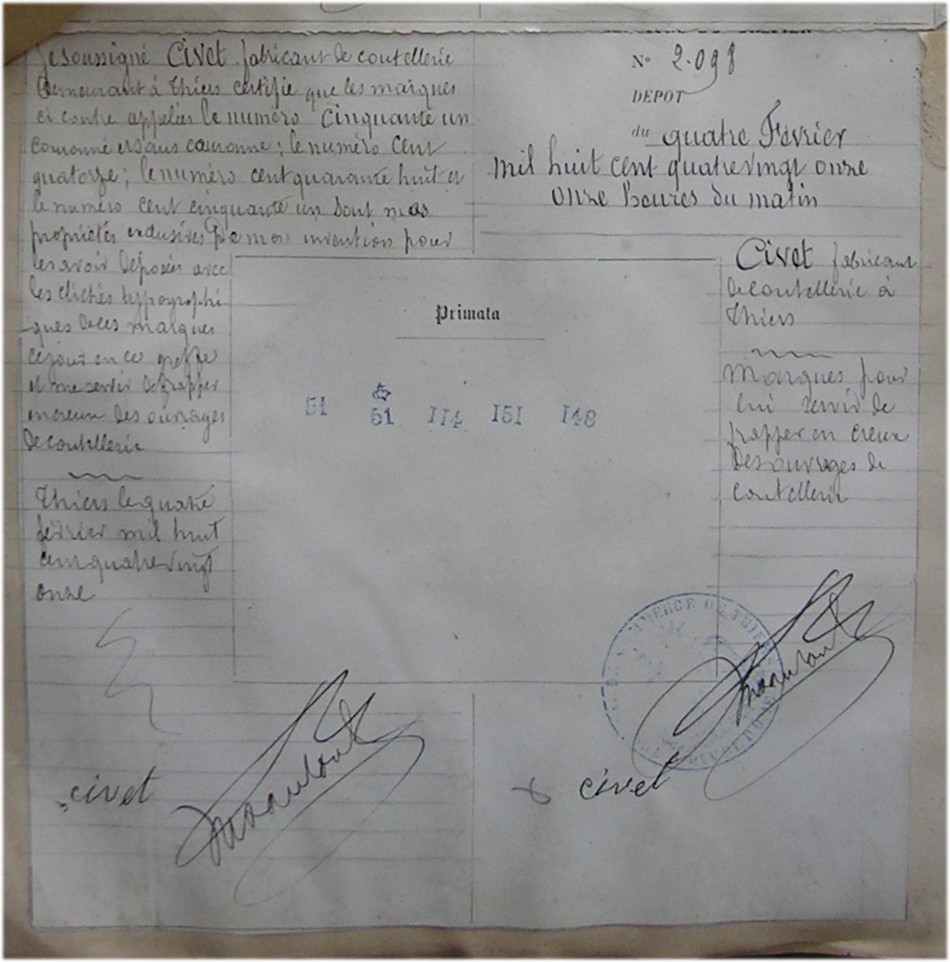 Je soussigné Civet fabricant de coutellerie
demeurant à Thiers certifie que les marques
ci contre appelées le numéro Cinquante un
couronné et sans couronne ; le numéro Cent
quatorze ; le numéro cent quarante huit et
le numéro cent cinquante un sont mes
propriétés exclusives de mon invention pour
les avoir déposées avec
les clichés typographi
ques de ces marques
ce jour en ce greffe
et me servir de frapper
en creux des ouvrages
de coutellerie
Thiers le quatre
février mil huit
cent quatre vingt
onze
civet
N° 2.098
DEPOT
du quatre Février
mil huit cent quatrevingt onze
onze heures du matin
Primata
51 51 114 151 148
Civet fabricant
de coutellerie à
Thiers
Marques pour
lui servir de
frapper en creux
des ouvrages de
coutellerie
COMMERCE DE THIERS
civet